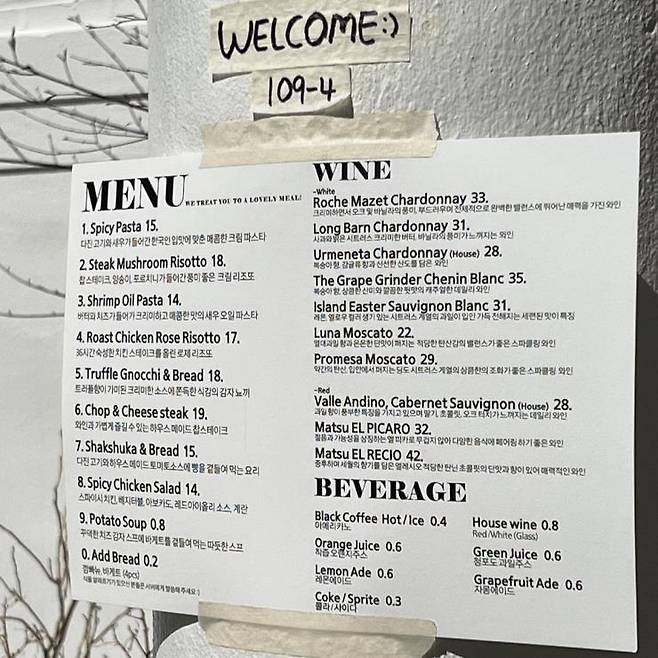 WELCOME:)
109-4
MENU WE TREAT YOU TO A LOVELY MEAL!
1. Spicy Pasta 15.
다진 고기와 새우가 들어간 한국인 입맛에 맞춘 매콤한 크림 파스타
2. Steak Mushroom Risotto 18.
찹 스테이크, 양송이, 포르치니가 들어간 풍미 좋은 크림 리조또
3. Shrimp Oil Pasta 14.
버터와 치즈가 들어가 크리미하고 매콤한 맛의 새우 오일 파스타
4. Roast Chicken Rose Risotto 17.
36시간 숙성한 치킨 스테이크를 올린 로제 리조또
5. Truffle Gnocchi & Bread 18.
트러플향이 가미된 크리미한 소스에 쫀득한 식감의 감자 뇨끼
6. Chop & Cheese steak 19.
와인과 가볍게 즐길 수 있는 하우스 메이드 찹스테이크
7. Shakshuka & Bread 15.
다진 고기와 하우스 메이드 토마토 소스에 빵을 곁들여 먹는 요리
8. Spicy Chicken Salad 14.
스파이시 치킨, 베지터블, 아보카도, 레드아이올리 소스, 계란
9. Potato Soup 0.8
꾸덕한 치즈 감자 스프에 바게트를 곁들여 먹는 따듯한 스프
0. Add Bread 0.2
깜빠뉴, 바게트 (4pcs)
식품 알레르기가 있으신 분들은 서버에게 말씀해 주세요 :)
WINE
-White
Roche Mazet Chardonnay 33.
크리미하면서 오크 및 바닐라의 풍미, 부드러우며 전체적으로 완벽한 밸런스에 뛰어난 매력을 가진 와인
Long Barn Chardonnay 31.
사과와 밝은 시트러스 크리미한 버터, 바닐라의 풍미가 느껴지는 와인
Urmeneta Chardonnay (House) 28.
복숭아 향, 감귤류 향과 신선한 산도를 담은 와인
The Grape Grinder Chenin Blanc 35.
복숭아 향, 상큼한 산미와 깔끔한 뒷맛의 캐주얼한 데일리 와인
Island Easter Sauvignon Blanc 31.
레몬, 옐로우 컬러 생기 있는 시트러스 계열의 과일이 입안 가득 전해지는 세련된 맛이 특징
Luna Moscato 22.
열대과일 향과 은은한 단맛이 퍼지는 적당한 탄산감의 밸런스가 좋은 스파클링 와인
Promesa Moscato 29.
약간의 탄산, 입안에서 퍼지는 당도 시트러스 계열의 상큼한의 조화가 좋은 스파클링 와인
-Red
Valle Andino, Cabernet Sauvignon (House) 28.
과일 향이 풍부한 특징을 가지고 있으며 딸기, 초콜릿, 오크 터치가 느껴지는 데일리 와인
Matsu EL PICARO 32.
젊음과 가능성을 상징하는 엘 피카로 무겁지 않아 다양한 음식에 페어링 하기 좋은 와인
Matsu EL RECIO 42.
중후하며 세월의 향기를 담은 엘레시오 적당한 탄닌 초콜릿의 단맛과 향이 있어 매력적인 와인
BEVERAGE
Black Coffee Hot / Ice 0.4
아메리카노
Orange Juice 0.6
착즙 오렌지주스
Lemon Ade 0.6
레몬에이드
Coke / Sprite 0.3
콜라 / 사이다
House wine 0.8
Red / White (Glass)
Green Juice 0.6
청포도 과일주스
Grapefruit Ade 0.6
자몽에이드